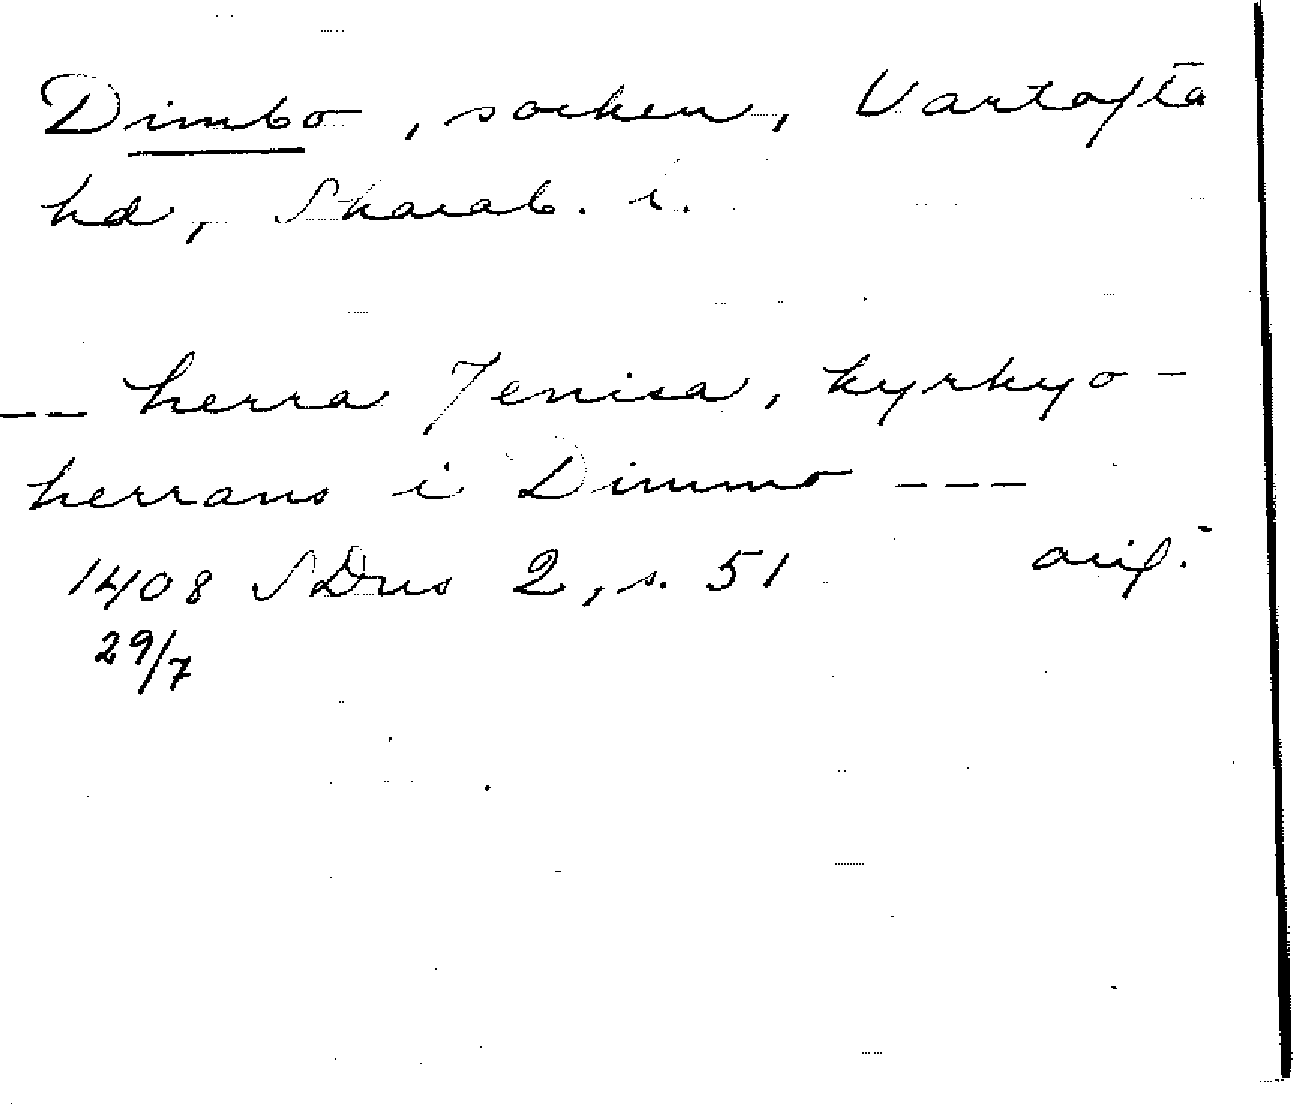 Dimbo, socken, Vartofta
hd, Skarab. l.
--- herra Jenisa, kyrkyo-
herrans i Dimmo ---
1408 SDns 2, s. 51 orig.
29/7